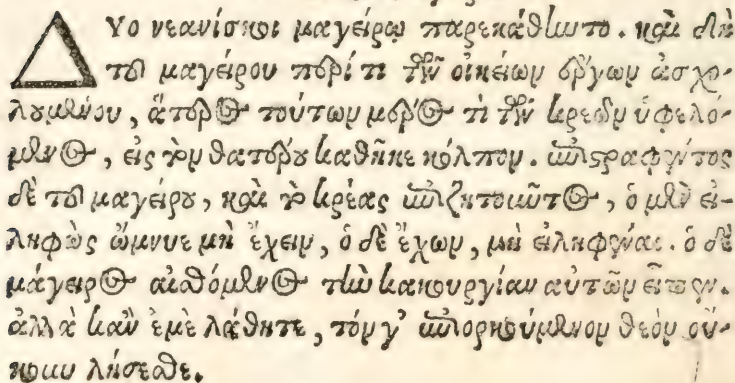 ΔΥο νεανίσκοι μαγείρῳ παρεκάθηντο. καὶ δὴ
τοῦ μαγείρου περί τι τῶν οἰκείων ἔργων ἀσχο-
λουμένου, ἅτερος τούτων μέρος τὶ τῶν κρεῶν ὑφελό-
μενος, εἰς τὸν θατέρου καθῆκε κόλπον. ἐπιστραφέντος
δὲ τοῦ μαγείρου, καὶ τὸ κρέας ἐπιζητοῦντος, ὁ μὲν εἰ-
ληφὼς ὤμνυε μὴ ἔχειν, ὁ δὲ ἔχων, μὴ εἰληφέναι. ὁ δὲ
μάγειρος αἰσθόμενος τὴν κακουργίαν αὐτῶν εἶπεν.
ἀλλὰ κἂν ἐμὲ λάθητε, τόν γ' ἐπιορκούμενον θεὸν οὔ-
κουν λήσεσθε.